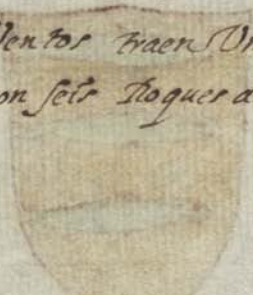 Uentos traen Un
on seis Roques a